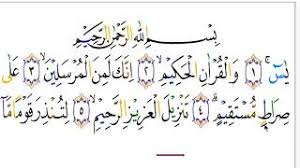 بِسْمِ اللَّهِ الرَّحْمَٰنِ الرَّحِيمِ
يسٓ ﴿١﴾ وَالْقُرْآنِ الْحَكِيمِ ﴿٢﴾ إِنَّكَ لَمِنَ الْمُرْسَلِينَ ﴿٣﴾ عَلَىٰ
صِرَاطٍ مُّسْتَقِيمٍ ﴿٤﴾ تَنزِيلَ الْعَزِيزِ الرَّحِيمِ ﴿٥﴾ لِتُنذِرَ قَوْمًا مَّا